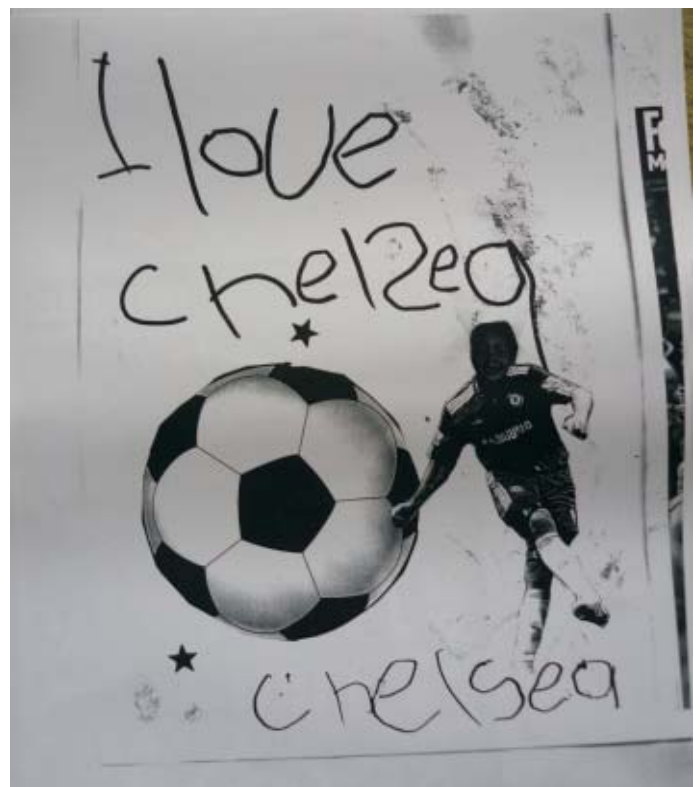 I love
chelsea
chelsea